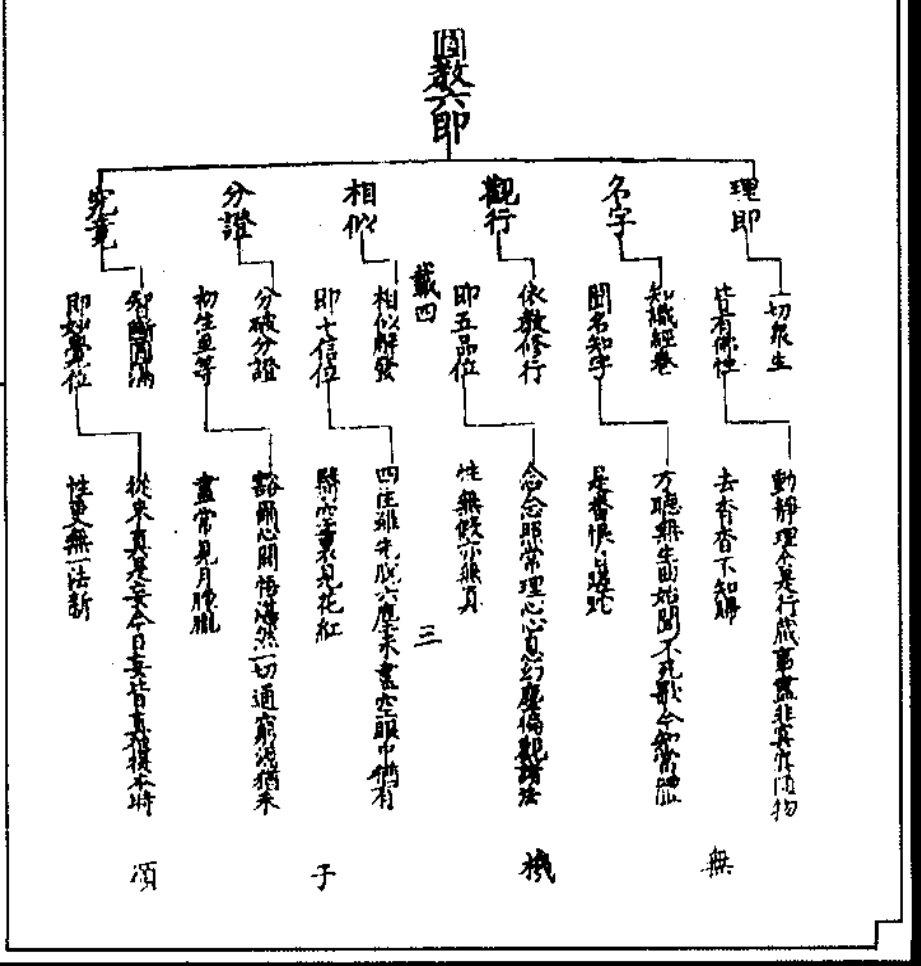 圓教六即
理即
一切眾生
皆有佛性
動靜理全是行藏事盡非冥冥隨物
去杳杳不知歸
名字
知識經卷
聞名知字
方聽無生曲始聞不死歌今知當體
是番恨自蹉跎
觀行
依教修行
即五品位
念念照常理心心息幻塵徧觀諸法
性無假亦無真
藏四
三
相似
相似解發
即七信位
四住雖先脫六塵未盡空眼中猶有
翳空裏見花紅
分證
分破分證
初住至等
豁爾心開悟湛然一切通窮源猶未
盡常見月朦朧
究竟
智斷圓滿
即妙覺位
從來真是妄今日妄皆真但復本時
性更無一法新
無機子頌